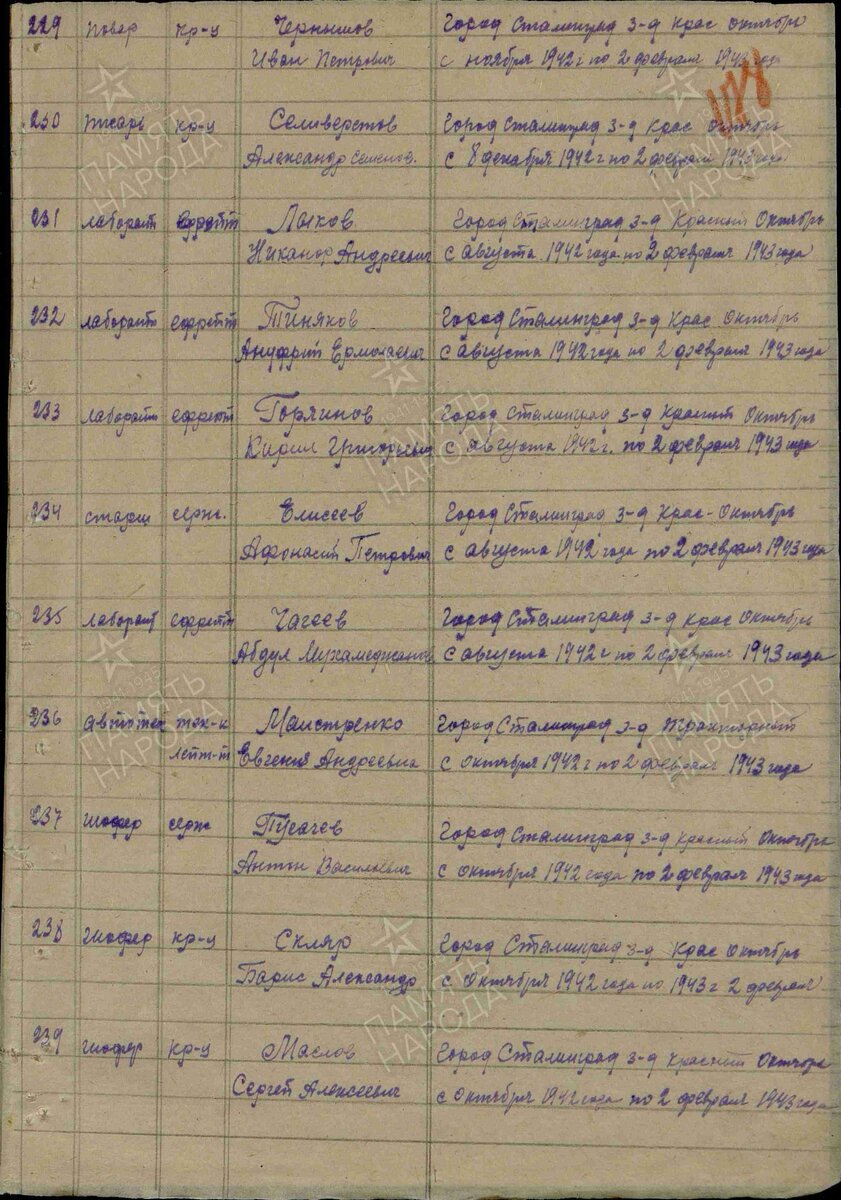 229 повар кр-ц Чернышов Город Сталинград з-д Крас Октябрь
Иван Петрович с ноября 1942 г по 2 февраля 1943 года
230 писарь кр-ц Селиверстов Город Сталинград з-д Крас Октябрь
Александр Семенов. с 8 декабря 1942 г по 2 февраля 1943 года
231 лаборант ефрейт Лыков Город Сталинград з-д Красный Октябрь
Никанор Андреевич с августа 1942 года по 2 февраля 1943 года
232 лаборант ефрейт Тиняков Город Сталинград з-д Крас Октябрь
Ануфрий Ермолаевич с августа 1942 года по 2 февраля 1943 года
233 лаборант ефрейт Горяинов Город Сталинград з-д Красный Октябрь
Кирил Григорьевич с августа 1942 г. по 2 февраля 1943 года
234 старш серж. Елисеев Город Сталинград з-д Крас-Октябрь
Афонасий Петрович с августа 1942 года по 2 февраля 1943 года
235 лаборант ефрейт Чагеев Город Сталинград з-д Крас Октябрь
Абдул Мухамеджанов с августа 1942 г по 2 февраля 1943 года
236 автотех тех-к Маистренко Город Сталинград з-д Тракторный
лейт-т Евгения Андреевна с октября 1942 г по 2 февраля 1943 года
237 шофер серж Пугачев Город Сталинград з-д Красный Октябрь
Антон Васильевич с октября 1942 года по 2 февраля 1943 года
238 шофер кр-ц Скляр Город Сталинград з-д Крас Октябрь
Барис Александр с октября 1942 года по 1943 г 2 февраля
239 шофер кр-ц Маслов Город Сталинград з-д Красный Октябрь
Сергей Алексеевич с октября 1942 года по 2 февраля 1943 года
ПАМЯТЬ
НАРОДА